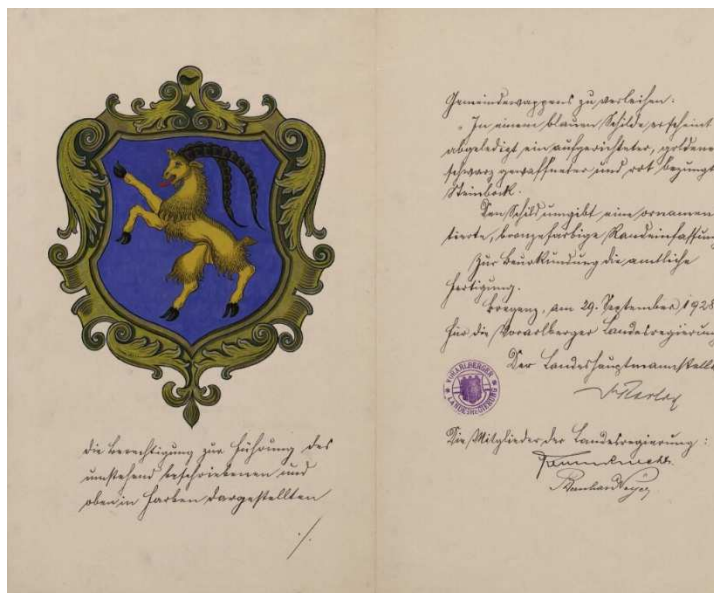 die Berechtigung zur Führung des
umstehend beschriebenen und
oben in Farben dargestellten
./.
Gemeindewappens zu verleihen:
"In einem blauen Schilde erscheint
abgeledigt ein aufgerichteter, goldener
schwarz gewaffneter und rot bezungter
Steinbock.
Den Schild umgibt eine ornamen
tierte, bronzefarbige Randeinfassung
Zur Beurkundung die amtliche
Fertigung.
Bregenz, am 29. September 1928
Für die Vorarlberger Landesregierung
Der Landeshauptmannstellv
VORARLBERGER LANDESREGIERUNG
Die Mitglieder der Landesregierung: